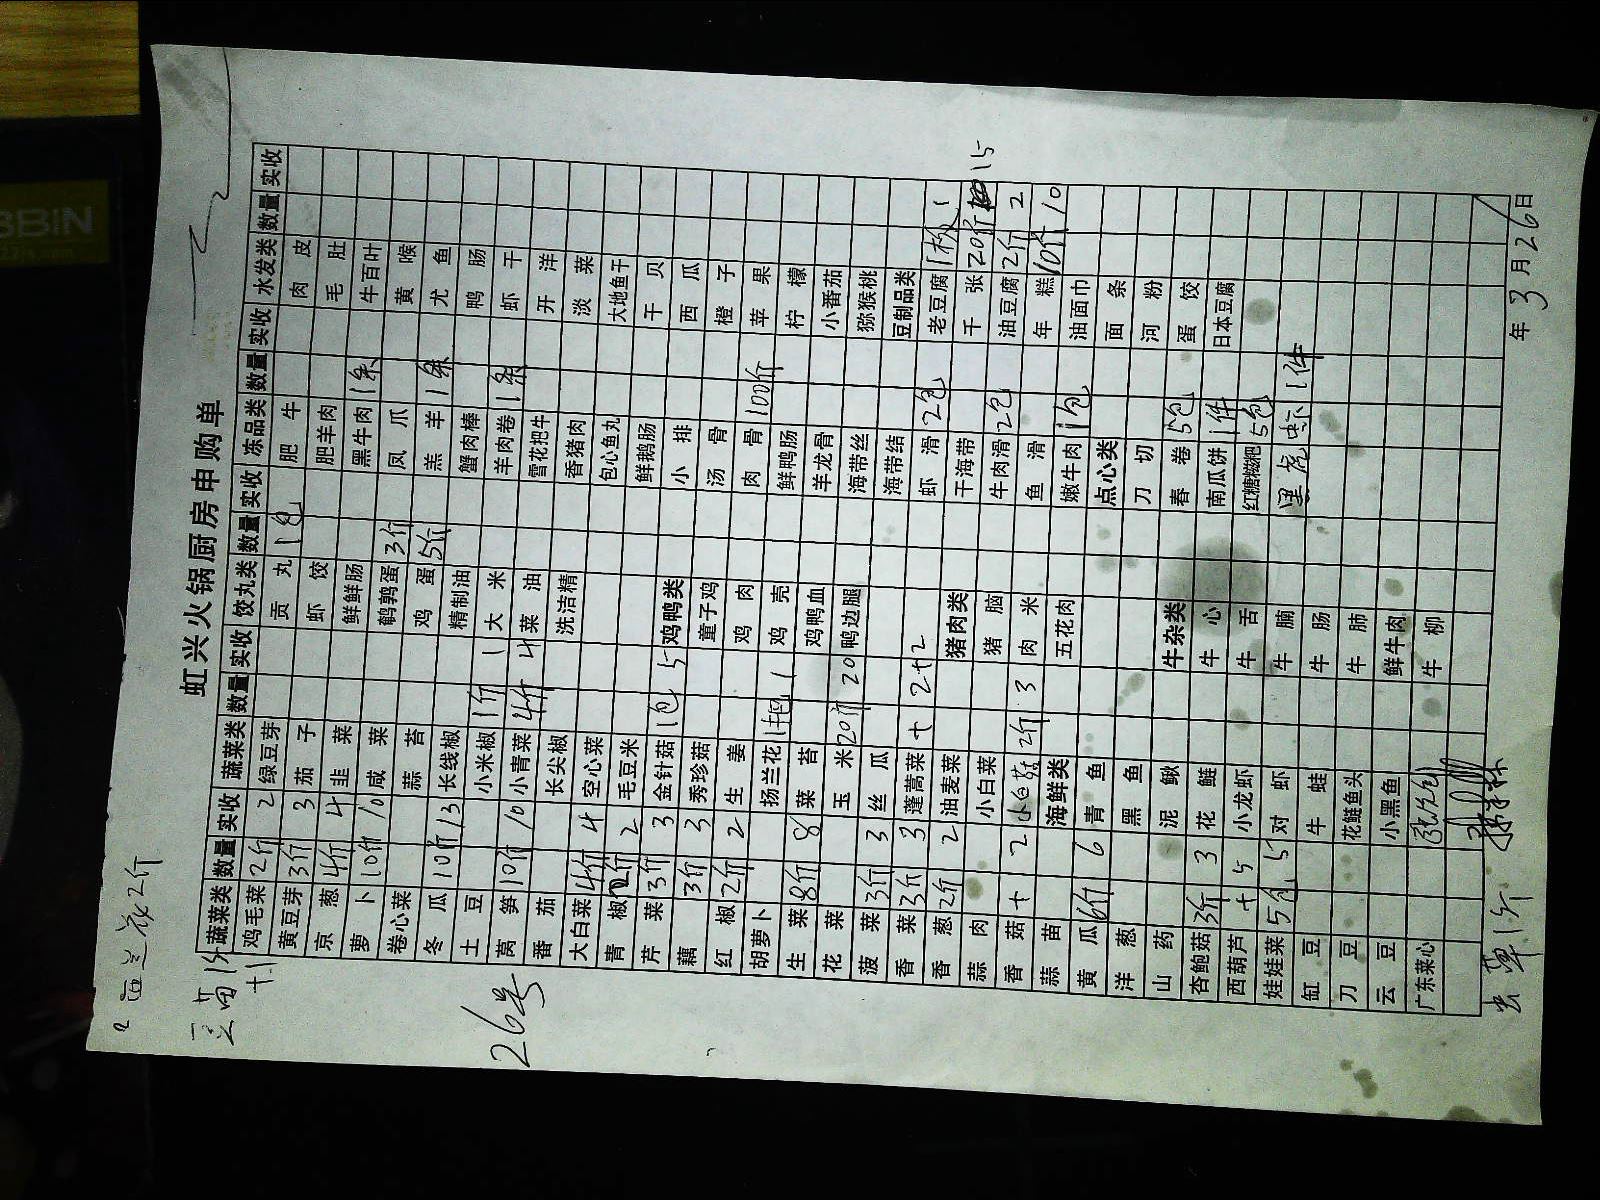 虹兴火锅厨房申购单
26号
蔬菜类 数量 实收 蔬菜类 数量 实收 饺丸类 数量 实收 冻品类 数量 实收 水发类 数量 实收
鸡毛菜 2斤 2 绿豆芽 贡丸 1包 肥牛 肉皮
黄豆芽 3斤 3 茄子 虾饺 肥羊肉 毛肚
京葱 4斤 4 韭菜 鲜鲜肠 黑牛肉 1条 牛百叶
萝卜 10斤 10 咸菜 鹌鹑蛋 3斤 凤爪 黄喉
卷心菜 蒜苔 鸡蛋 5斤 羔羊 1条 尤鱼
冬瓜 10斤 13 长线椒 精制油 蟹肉棒 鸭肠
土豆 小米椒 1斤 1 大米 羊肉卷 1条 虾干
莴笋 10斤 10 小青菜 4斤 4 菜油 雪花把牛 开洋
番茄 长尖椒 洗洁精 香猪肉 淡菜
大白菜 4斤 4 空心菜 包心鱼丸 大地鱼干
青椒 2斤 2 毛豆米 鲜鹅肠 干贝
芹菜 3斤 3 金针菇 1包 5 鸡鸭类 小排 西瓜
藕 3斤 3 秀珍菇 童子鸡 汤骨 橙子
红椒 2斤 2 生姜 鸡肉 肉骨 100斤 苹果
胡萝卜 扬兰花 1 鸡壳 鲜鸭肠 柠檬
生菜 8斤 8 菜苔 鸡鸭血 羊龙骨 小番茄
花菜 玉米 20斤 20 鸭边腿 海带丝 猕猴桃
菠菜 3斤 3 丝瓜 海带结 豆制品类
香菜 3斤 3 蓬蒿菜 十 2+2 虾滑 2包 老豆腐 1板 1
香葱 2斤 2 油麦菜 猪肉类 干海带 千张 20斤 15
蒜肉 小白菜 猪脑 牛肉滑 2包 油豆腐 2斤 2
香菇 十 2 小白菇 2斤 3 肉米 鱼滑 年糕 10斤 10
蒜苗 海鲜类 五花肉 嫩牛肉 1包 油面巾
黄瓜 6斤 6 青鱼 点心类 面条
洋葱 黑鱼 刀切 河粉
山药 泥鳅 牛杂类 春卷 5包 蛋饺
杏鲍菇 3斤 3 花鲢 牛心 南瓜饼 1件 日本豆腐
西葫芦 十 5 小龙虾 牛舌 红糖糍粑 5包
娃娃菜 5斤 5 对虾 牛腩 黑虎虾 1件
缸豆 牛蛙 牛肠
刀豆 花鲢鱼头 牛肺
云豆 小黑鱼 鲜牛肉
广东菜心 牛柳
年3月26日